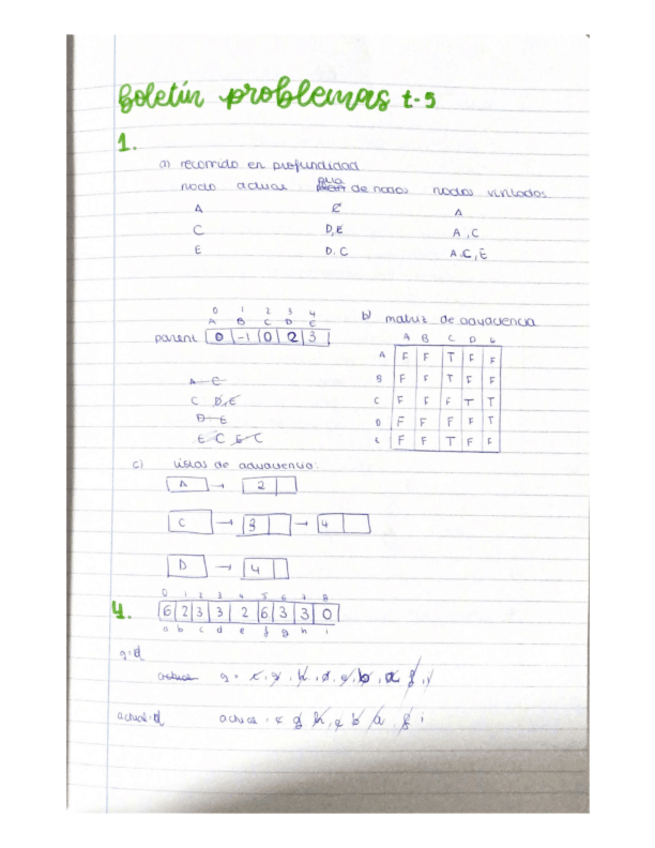 Boletín problemas t-5
1.
a) recorrido en profundidad
nodo actual pila de nodos nodos visitados
A C A
C D,E A,C
E D.C A.C,E
0 1 2 3 4
A B C D E
parent 0 -1 0 2 3
b) matriz de adyacencia
A B C D E
A F F T F F
B F F T F F
C F F F T T
D F F F F T
E F F T F F
A C
C D,E
D E
E C
c) listas de adyacencia:
A → 2
C → 3 → 4
D → 4
0 1 2 3 4 5 6 7 8
4. 6 2 3 3 2 6 3 3 0
a b c d e f g h i
q=d
actual=d